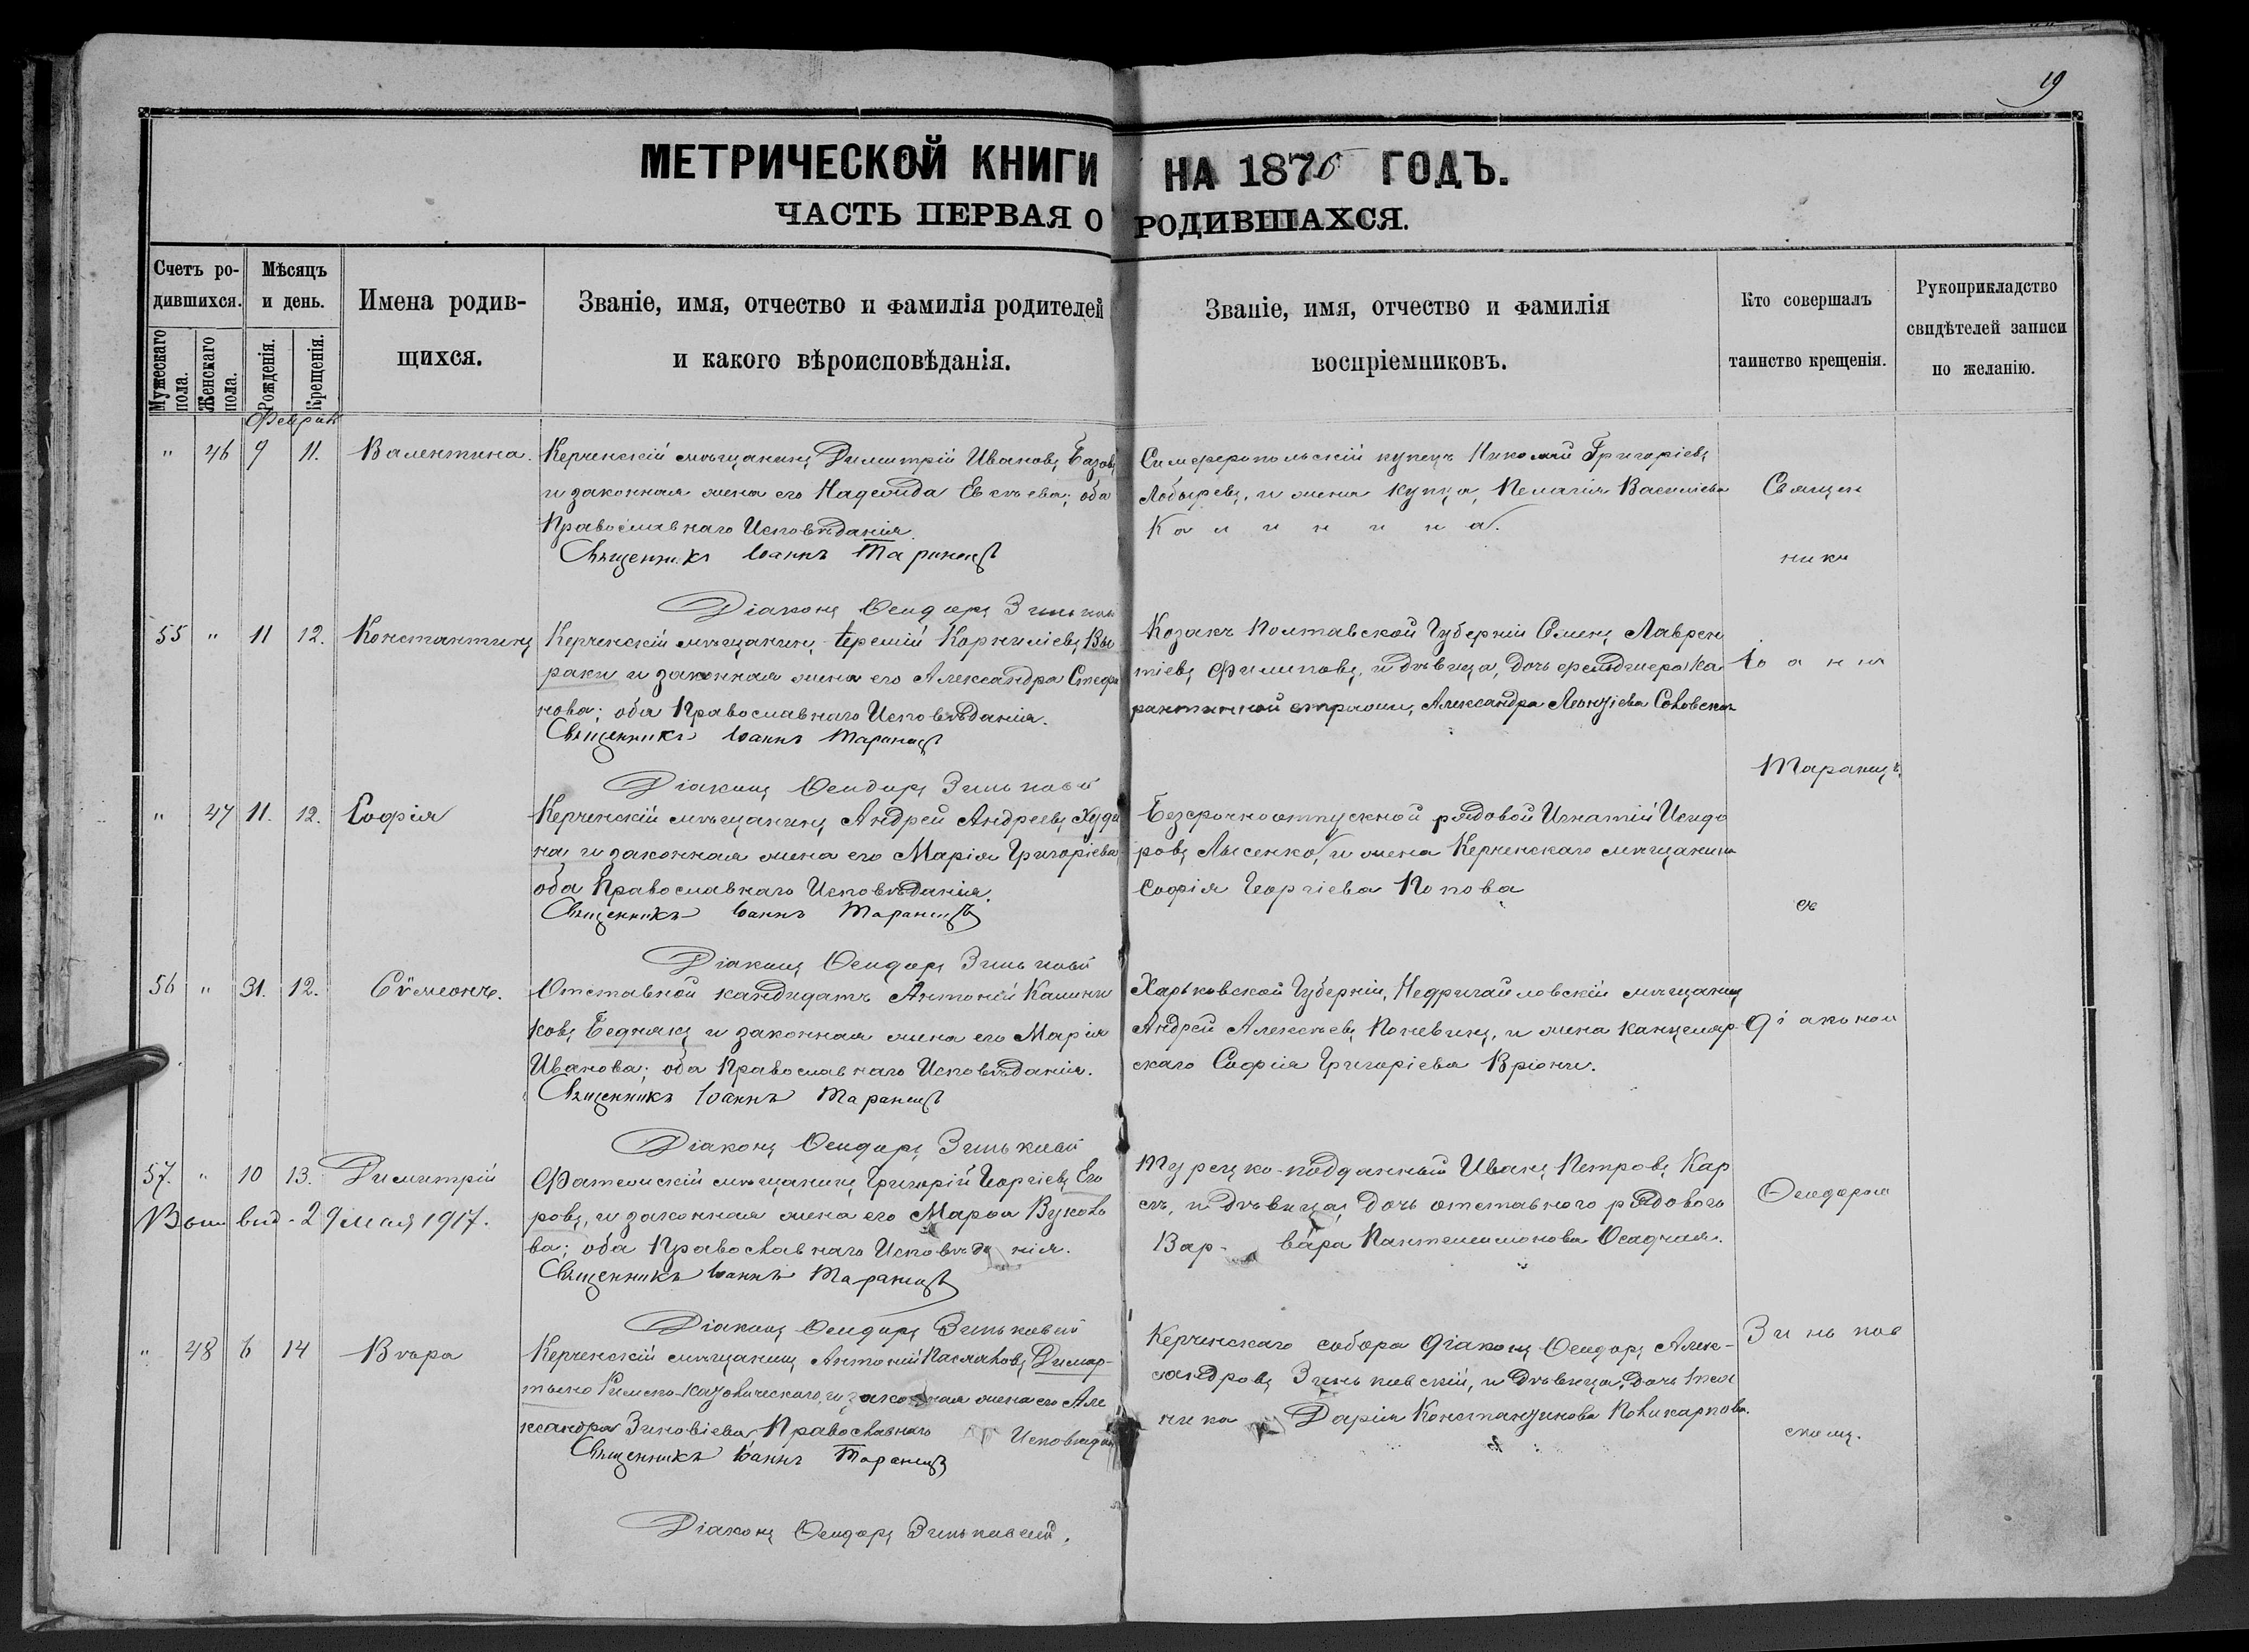 19
МЕТРИЧЕСКОЙ КНИГИ НА 1876 ГОДЪ.
ЧАСТЬ ПЕРВАЯ О РОДИВШАХСЯ.
Счетъ ро-
дившихся.
Мужескаго пола.
Женскаго пола.
Мѣсяцъ
и день.
Рожденія.
Крещенія.
Имена родив-
щихся.
Званіе, имя, отчество и фамилія родителей
и какого вѣроисповѣданія.
Званіе, имя, отчество и фамилія
воспріемниковъ.
Кто совершалъ
таинство крещенія.
Рукоприкладство
свидѣтелей записи
по желанію.
" 46 9 11. Валентина.
Керченскій мѣщанинъ Димитрій Ивановъ
и законная жена его Надежда оба
Православнаго Исповѣданія.
Священникъ Іоаннъ Таранецъ
Діаконъ Ѳеодоръ
Симферопольскій купецъ Николай Григоріевъ
и жена купца, Пелагія Василіева
Калинина.
55 " 11 12. Константинъ
Керченскій мѣщанинъ Корниліевъ Вы
раки и законная жена его Александра Стефа
нова; оба Православнаго Исповѣданія.
Священникъ Іоаннъ Таранецъ
Діаконъ Ѳеодоръ
Козакъ Полтавской Губерніи Лаврен
тіевъ Филиповъ, и дѣвица, дочь фельдшера ка
рантинной стражи, Александра
" 47 11. 12. Софія
Керченскій мѣщанинъ Андрей Андреевъ Худи
на и законная жена его Марія Григоріева
оба Православнаго Исповѣданія.
Священникъ Іоаннъ Таранецъ
Діаконъ Ѳеодоръ
Безсрочноотпускной рядовой Игнатій Исидо
ровъ Лысенко, и жена Керченскаго мѣщанина
Софія Георгіева Попова
56 " 31. 12. Сѵмеонъ.
Отставной кандидатъ Антоній Калини
ковъ Беднякъ и законная жена его Марія
Иванова; оба Православнаго Исповѣданія.
Священникъ Іоаннъ Таранецъ
Діаконъ Ѳеодоръ
Харьковской Губерніи, Недригайловскій мѣщанинъ
Андрей Алексѣевъ и жена канцеляр
скаго Софія Григоріева Вріони.
57. " 10 13. Димитрій
Выд. 29 Мая 1917.
Фатежскій мѣщанинъ Григорій Георгіевъ Его
ровъ, и законная жена его Марѳа
ва; оба Православнаго Исповѣданія.
Священникъ Іоаннъ Таранецъ
Діаконъ Ѳеодоръ Зиньковскій
Турецко-подданный Иванъ Петровъ
и дѣвица, дочь отставного рядового
Варвара Пантелеимонова Осадчая.
" 48 6 14 Вѣра
Керченскій мѣщанинъ Антоній Димар-
тыно Римско-Католическаго, и законная жена его Але
ксандра Зиновіева Православнаго Исповѣдан
Священникъ Іоаннъ Таранецъ
Діаконъ Ѳеодоръ Зиньковскій.
Керченскаго собора діаконъ Ѳеодоръ Алек-
сандровъ Зиньковскій, и дѣвица, дочь
Дарія Константинова Поликарпова.
Священ
никъ
Іоаннъ
Таранецъ
съ
діакономъ
Ѳеодоромъ
Зиньков
скимъ.